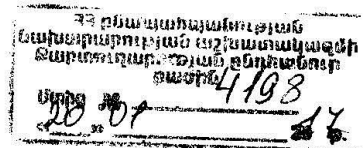 ՀՀ բնապահպանության
նախարարության աշխատակազմի
քարտուղարության ընդհանուր
բաժին
Մուտք № 4198
« 20 » 01 2017 թ.